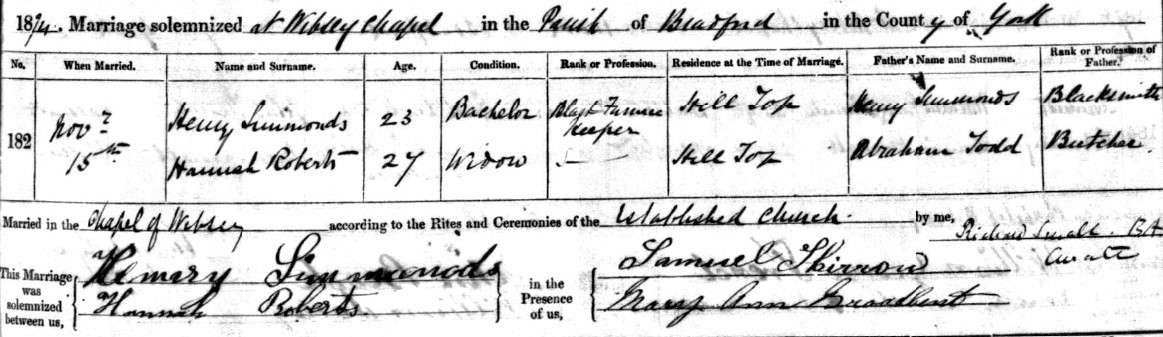 1874. Marriage solemnized at Wibsey Chapel in the Parish of Bradford in the County of York
No. When Married. Name and Surname. Age. Condition. Rank or Profession. Residence at the Time of Marriage. Father's Name and Surname. Rank or Profession of Father.
182 Novr 15th
Henry Simmonds 23 Bachelor Blast Furnace Keeper Hill Top Henry Simmonds Blacksmith
Hannah Roberts 27 Widow — Hill Top Abraham Todd Butcher.
Married in the Chapel of Wibsey according to the Rites and Ceremonies of the Established Church. by me, Richard Small. BA
Curate
This Marriage was solemnized between us, Hemary Simmonods in the Presence of us, Samuel Skirrow
Hannah Roberts Mary Ann Broadbent